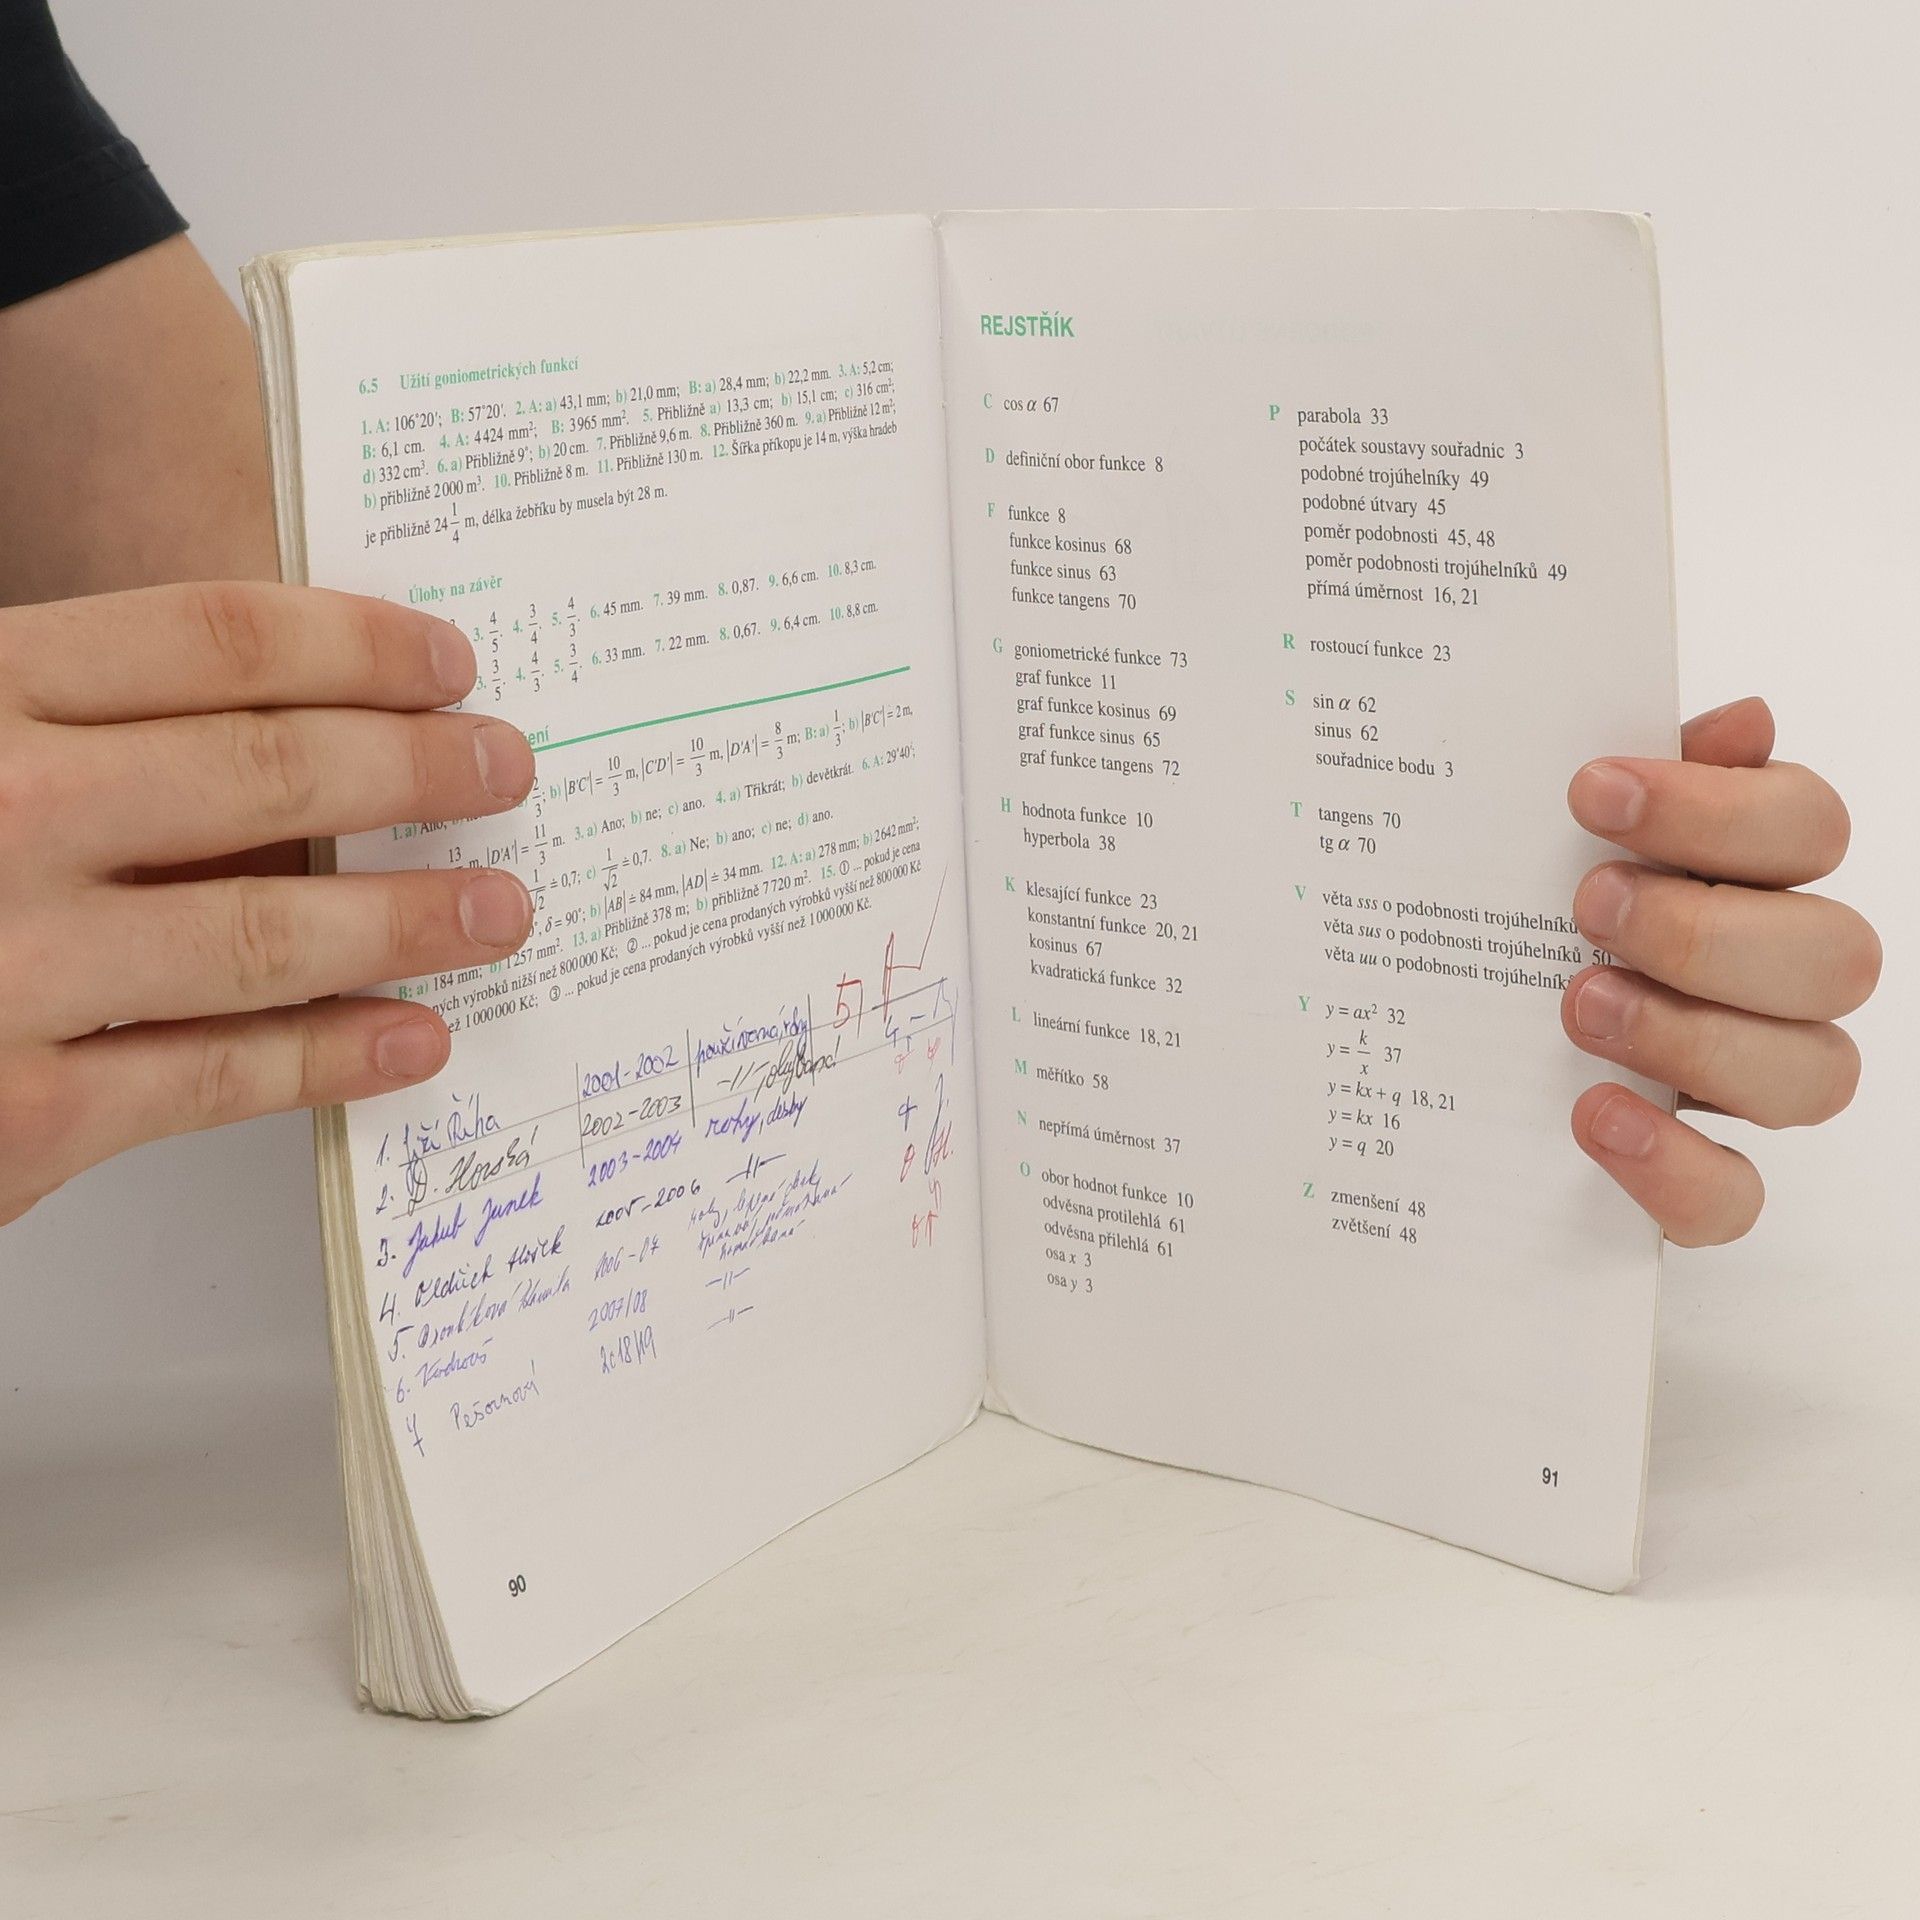 6.5 Užití goniometrických funkcí
1. A: 106°20'; B: 57°20'. 2. A: a) 43,1 mm; b) 21,0 mm; B: a) 28,4 mm; b) 22,2 mm. 3. A: 5,2 cm;
B: 6,1 cm. 4. A: 4424 mm²; B: 3965 mm². 5. Přibližně a) 13,3 cm; b) 15,1 cm; c) 316 cm²;
d) 332 cm³. 6. a) Přibližně 9°; b) 20 cm. 7. Přibližně 9,6 m. 8. Přibližně 360 m. 9. a) Přibližně 12 m²;
b) přibližně 2000 m³. 10. Přibližně 8 m. 11. Přibližně 130 m. 12. Šířka příkopu je 14 m, výška hradeb
je přibližně 24 1/4 m, délka žebříku by musela být 28 m.
Úlohy na závěr
3. 4/5. 4. 3/4. 5. 4/3. 6. 45 mm. 7. 39 mm. 8. 0,87. 9. 6,6 cm. 10. 8,3 cm.
3. 3/5. 4. 4/3. 5. 3/4. 6. 33 mm. 7. 22 mm. 8. 0,67. 9. 6,4 cm. 10. 8,8 cm.
1. a) Ano; 2/3; b) |B'C'| = 10/3 m, |C'D'| = 10/3 m, |D'A'| = 8/3 m; B: a) 1/3; b) |B'C'| = 2 m,
13 m, |D'A'| = 11/3 m. 3. a) Ano; b) ne; c) ano. 4. a) Třikrát; b) devětkrát. 6. A: 29°40';
1/√2 ≐ 0,7; c) 1/√2 ≐ 0,7. 8. a) Ne; b) ano; c) ne; d) ano.
δ = 90°; b) |AB| ≐ 84 mm, |AD| ≐ 34 mm. 12. A: a) 278 mm; b) 2642 mm²;
B: a) 184 mm; b) 1257 mm². 13. a) Přibližně 378 m; b) přibližně 7720 m². 15. ① ... pokud je cena
ných výrobků nižší než 800000 Kč; ② ... pokud je cena prodaných výrobků vyšší než 800000 Kč
ež 1000000 Kč; ③ ... pokud je cena prodaných výrobků vyšší než 1000000 Kč.
1. Jiří Říha 2001-2002
2. D. Horská 2002-2003 -"-
3. Jakub Janek 2003-2004 rohy, desky
4. Oldřich 2005-2006 -"-
5. 2006-07
6. 2007/08 -"-
7 2018/19 -"-
90
REJSTŘÍK
C cos α 67
D definiční obor funkce 8
F funkce 8
funkce kosinus 68
funkce sinus 63
funkce tangens 70
G goniometrické funkce 73
graf funkce 11
graf funkce kosinus 69
graf funkce sinus 65
graf funkce tangens 72
H hodnota funkce 10
hyperbola 38
K klesající funkce 23
konstantní funkce 20, 21
kosinus 67
kvadratická funkce 32
L lineární funkce 18, 21
M měřítko 58
N nepřímá úměrnost 37
O obor hodnot funkce 10
odvěsna protilehlá 61
odvěsna přilehlá 61
osa x 3
osa y 3
P parabola 33
počátek soustavy souřadnic 3
podobné trojúhelníky 49
podobné útvary 45
poměr podobnosti 45, 48
poměr podobnosti trojúhelníků 49
přímá úměrnost 16, 21
R rostoucí funkce 23
S sin α 62
sinus 62
souřadnice bodu 3
T tangens 70
tg α 70
V věta sss o podobnosti trojúhelníků
věta sus o podobnosti trojúhelníků 50
věta uu o podobnosti trojúhelník
Y y = ax² 32
y = k/x 37
y = kx + q 18, 21
y = kx 16
y = q 20
Z zmenšení 48
zvětšení 48
91